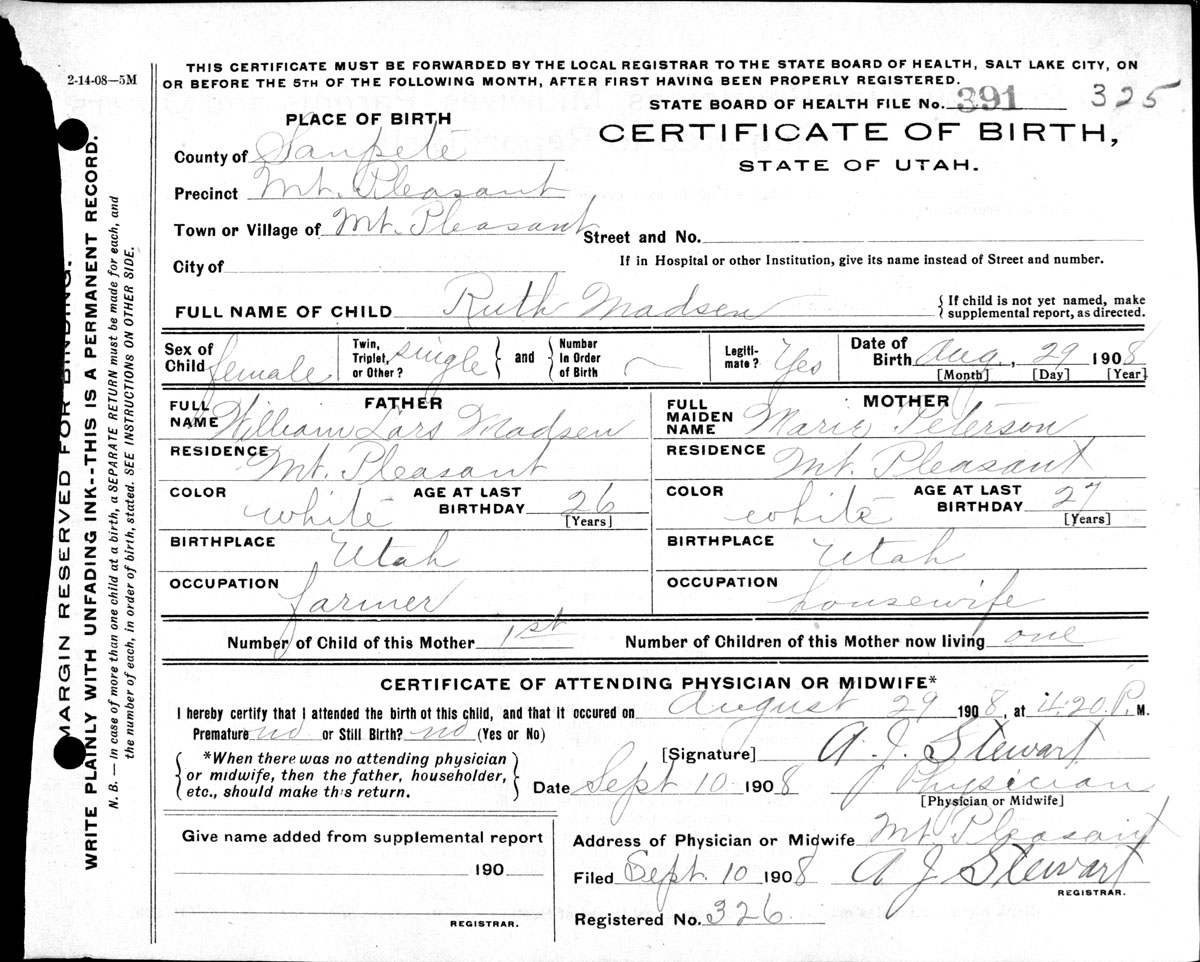 2-14-08—5M
THIS CERTIFICATE MUST BE FORWARDED BY THE LOCAL REGISTRAR TO THE STATE BOARD OF HEALTH, SALT LAKE CITY, ON
OR BEFORE THE 5TH OF THE FOLLOWING MONTH, AFTER FIRST HAVING BEEN PROPERLY REGISTERED.
STATE BOARD OF HEALTH FILE No. 391 325
PLACE OF BIRTH
CERTIFICATE OF BIRTH,
STATE OF UTAH.
County of Sanpete
Precinct Mt. Pleasant
Town or Village of Mt. Pleasant
Street and No.
City of
If in Hospital or other Institution, give its name instead of Street and number.
FULL NAME OF CHILD Ruth Madsen { If child is not yet named, make
supplemental report, as directed.
Sex of
Child female
Twin,
Triplet,
or Other? single } and { Number
In Order
of Birth
Legiti-
mate? Yes
Date of
Birth Aug, 29 1908
[Month] [Day] [Year]
FATHER
FULL
NAME William Lars Madsen
RESIDENCE Mt. Pleasant
COLOR white AGE AT LAST
BIRTHDAY 26
[Years]
BIRTHPLACE Utah
OCCUPATION farmer
MOTHER
FULL
MAIDEN
NAME Marie Peterson
RESIDENCE Mt. Pleasant
COLOR white AGE AT LAST
BIRTHDAY 27
[Years]
BIRTHPLACE Utah
OCCUPATION housewife
Number of Child of this Mother 1st Number of Children of this Mother now living one
CERTIFICATE OF ATTENDING PHYSICIAN OR MIDWIFE*
I hereby certify that I attended the birth of this child, and that it occured on August 29 1908, at 4:20 P. M.
Premature no or Still Birth? no (Yes or No)
[Signature] A. J. Stewart
{ *When there was no attending physician
or midwife, then the father, householder,
etc., should make this return. }
Date Sept 10 1908 Physician
[Physician or Midwife]
Give name added from supplemental report
190
REGISTRAR.
Address of Physician or Midwife Mt. Pleasant
Filed Sept. 10 1908 A J Stewart
REGISTRAR.
Registered No. 326
MARGIN RESERVED FOR BINDING.
WRITE PLAINLY WITH UNFADING INK--THIS IS A PERMANENT RECORD.
N. B. — In case of more than one child at a birth, a SEPARATE RETURN must be made for each, and
the number of each, in order of birth, stated. SEE INSTRUCTIONS ON OTHER SIDE.